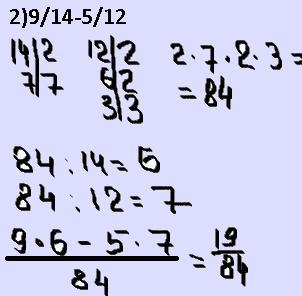 2)9/14-5/12
14|2 12|2 2·7·2·3=
7|7 6|2 =84
3|3
84:14=6
84:12=7
9·6-5·7/84=19/84